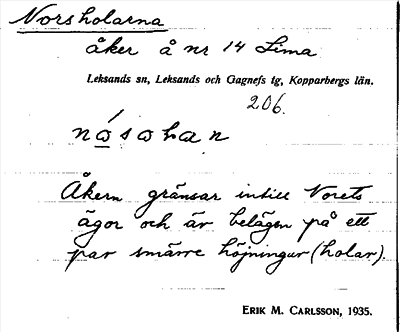 Norsholarna
åker å nr 14 Lima
Leksands sn, Leksands och Gagnefs tg, Kopparbergs län.
206.
Åkern gränsar intill Norets
ägor och är belägen på ett
par smärre höjningar (holar).
ERIK M. CARLSSON, 1935.